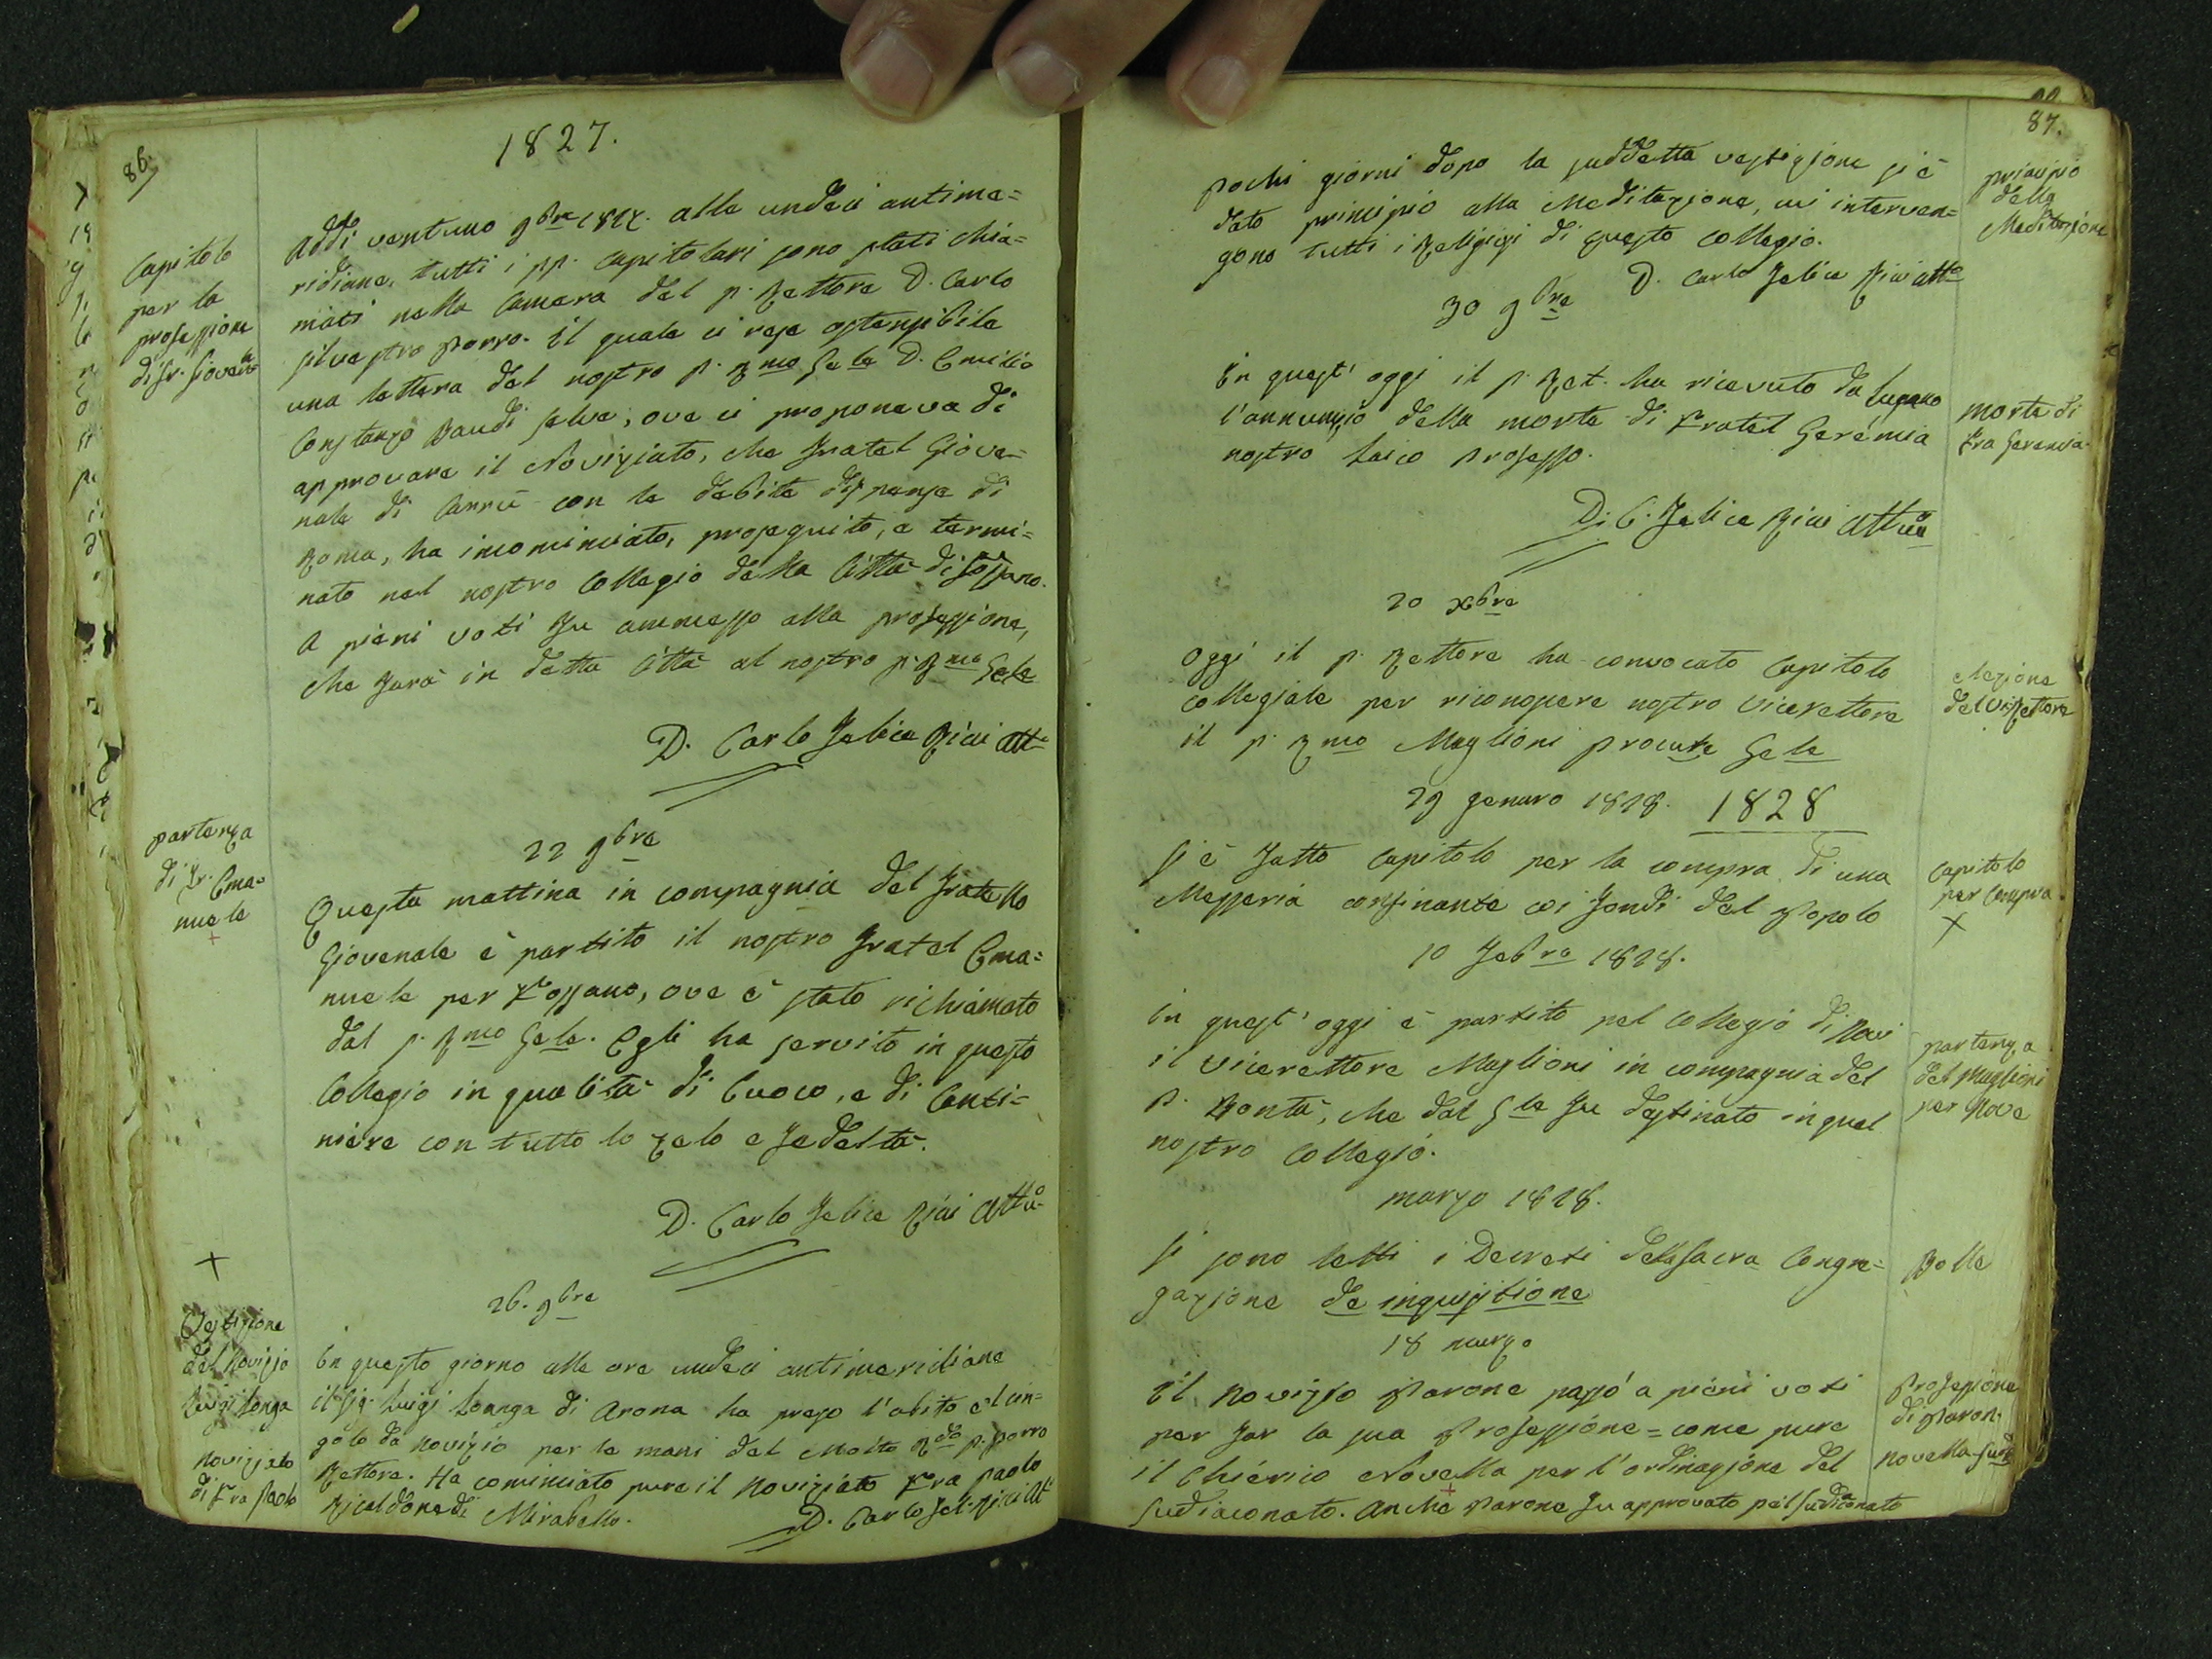 86.
1827.
Capitolo
per la
professione
di fr. Giovenle
Addi ventuno 9bre 1827. alle undeci antime=
ridiane, tutti i pp. capitolari sono stati chia=
mati nella Camera del p. Rettore D. Carlo
Silvestro Porro. Il quale ci rese ostensibile
una lettera del nostro p. Rmo Gele D. Emilio
Constanzo Baudi Selve, ove ci proponeva di
approvare il Noviziato, che fratel Giove=
nale di Carrù con le debite dispense di
Roma, ha incominciato, proseguito, e termi=
nato nel nostro Collegio della Città di Fossano.
A pieni voti fu ammesso alla professione,
che farà in detta Città al nostro p. Rmo Gele
D. Carlo Felice Ricci Atto
partenza
di fr. Ema=
nuele
+
22 9bre
Questa mattina in compagnia del fratello
Giovenale è partito il nostro fratel Ema=
nuele per Fossano, ove è stato richiamato
dal p. Rmo Gele. Egli ha servito in questo
Collegio in qualità di Cuoco, e di Canti=
niere con tutto lo zelo e fedeltà.
D. Carlo Felice Ricci Attuo
+
26. 9bre
Vestizione
del Novizio
Luigi Longa
noviziato
di Fra Paolo
In questo giorno alle ore undeci antimeridiane
il Sig. Luigi Loanga di Arona ha preso l'abito el cin=
golo da novizio per le mani del Molto Rdo p. Porro
Rettore. Ha cominciato pure il Noviziato Fra Paolo
Ricaldone di Mirabello.
D. Carlo Fel. Ricci Att
87.
principio
della
Meditazione
Pochi giorni dopo la suddetta vestizione si è
dato principio alla Meditazione, cui interven=
gono tutti i Religiosi di questo Collegio.
D. Carlo Felice Ricci Atto
30 9bre
In quest' oggi il p. Ret. ha ricevuto da Lugano
l'annunzio della morte di Fratel Geremia
nostro Laico Professo.
morte di
Fra Geremia.
D. C. Felice Ricci Attuo
20 Xbre
Oggi il p. Rettore ha convocato Capitolo
collegiale per riconoscere nostro Vicerettore
il p. Rmo Maglioni procure Gele
elezione
del ViRettore
29 genaro 1828. 1828
Si è fatto Capitolo per la compra di una
Messeria confinante coi fondi del Popolo
Capitolo
per Compra
+
10 Febro 1828.
In quest' oggi è partito pel Collegio di Novi
il Vicerettore Maglioni in compagnia del
P. Bontà, che dal Gle fu destinato in quel
nostro Collegio.
partenza
del Maglioni
per Nove
marzo 1828.
Si sono letti i Decreti della Sacra Congre=
gazione de inquisitione
Bolle
18 marzo
Il Novizio Parone passò a pieni voti
per far la sua Professione = come pure
il Chierico Novella per l'ordinazione del
Sudiaconato. Anche Parone fu approvato pel Sudiaconato
+
Professione
di Paron.
novella Sudo